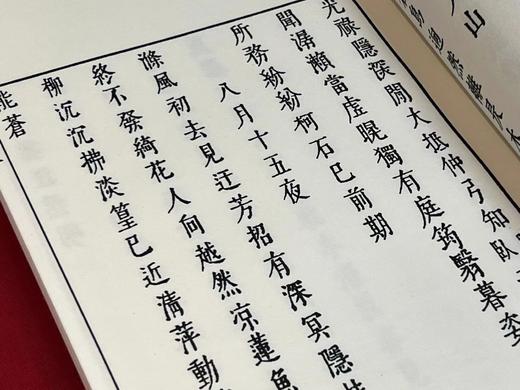 山
勢通
光祿隱深閒大抵仲弓知臥
聞潺瀨當虛晛獨有庭筠翳暮
所務紛紛柯石已前期
八月十五夜
滌風初去見迂芳招有深冥隱
終不發綺花人向越然涼蓮魚
柳沉沉拂淡篁已近清萍動
蒼